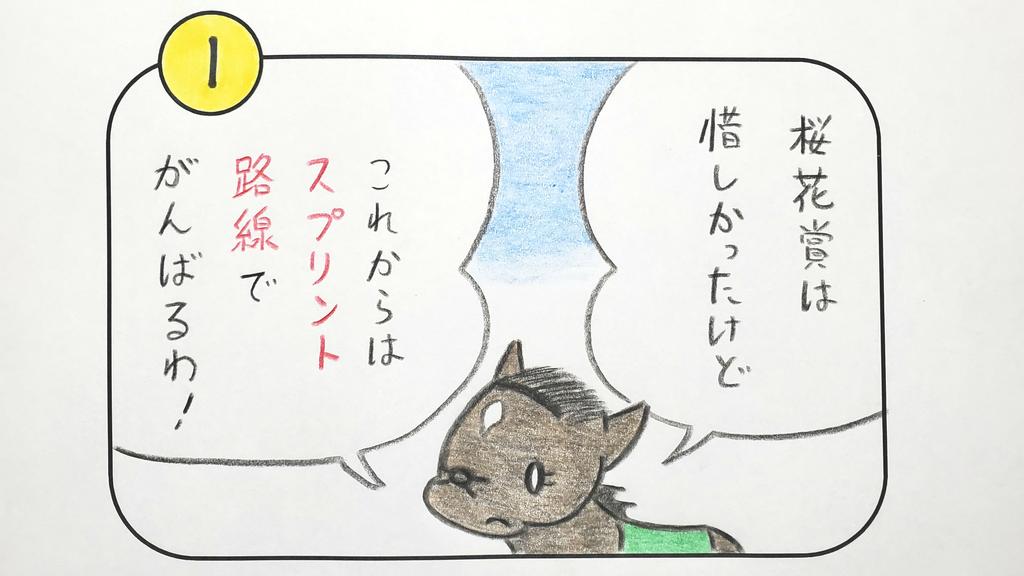 1
桜花賞は
惜しかったけど
これからは
スプリント
路線で
がんばるわ!